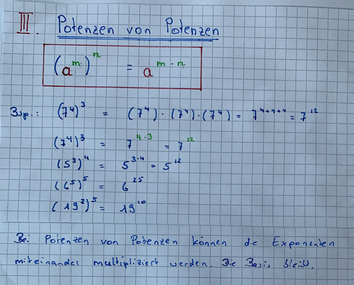 III. Potenzen von Potenzen
(a^m)^n = a^(m·n)
Bsp.: (7^4)^3 = (7^4) · (7^4) · (7^4) = 7^(4+4+4) = 7^12
(7^4)^3 = 7^(4·3) = 7^12
(5^3)^4 = 5^(3·4) = 5^12
(6^5)^5 = 6^25
(19^2)^5 = 19^10
Bei Potenzen von Potenzen können die Exponenten
miteinander multipliziert werden. Die Basis bleibt.